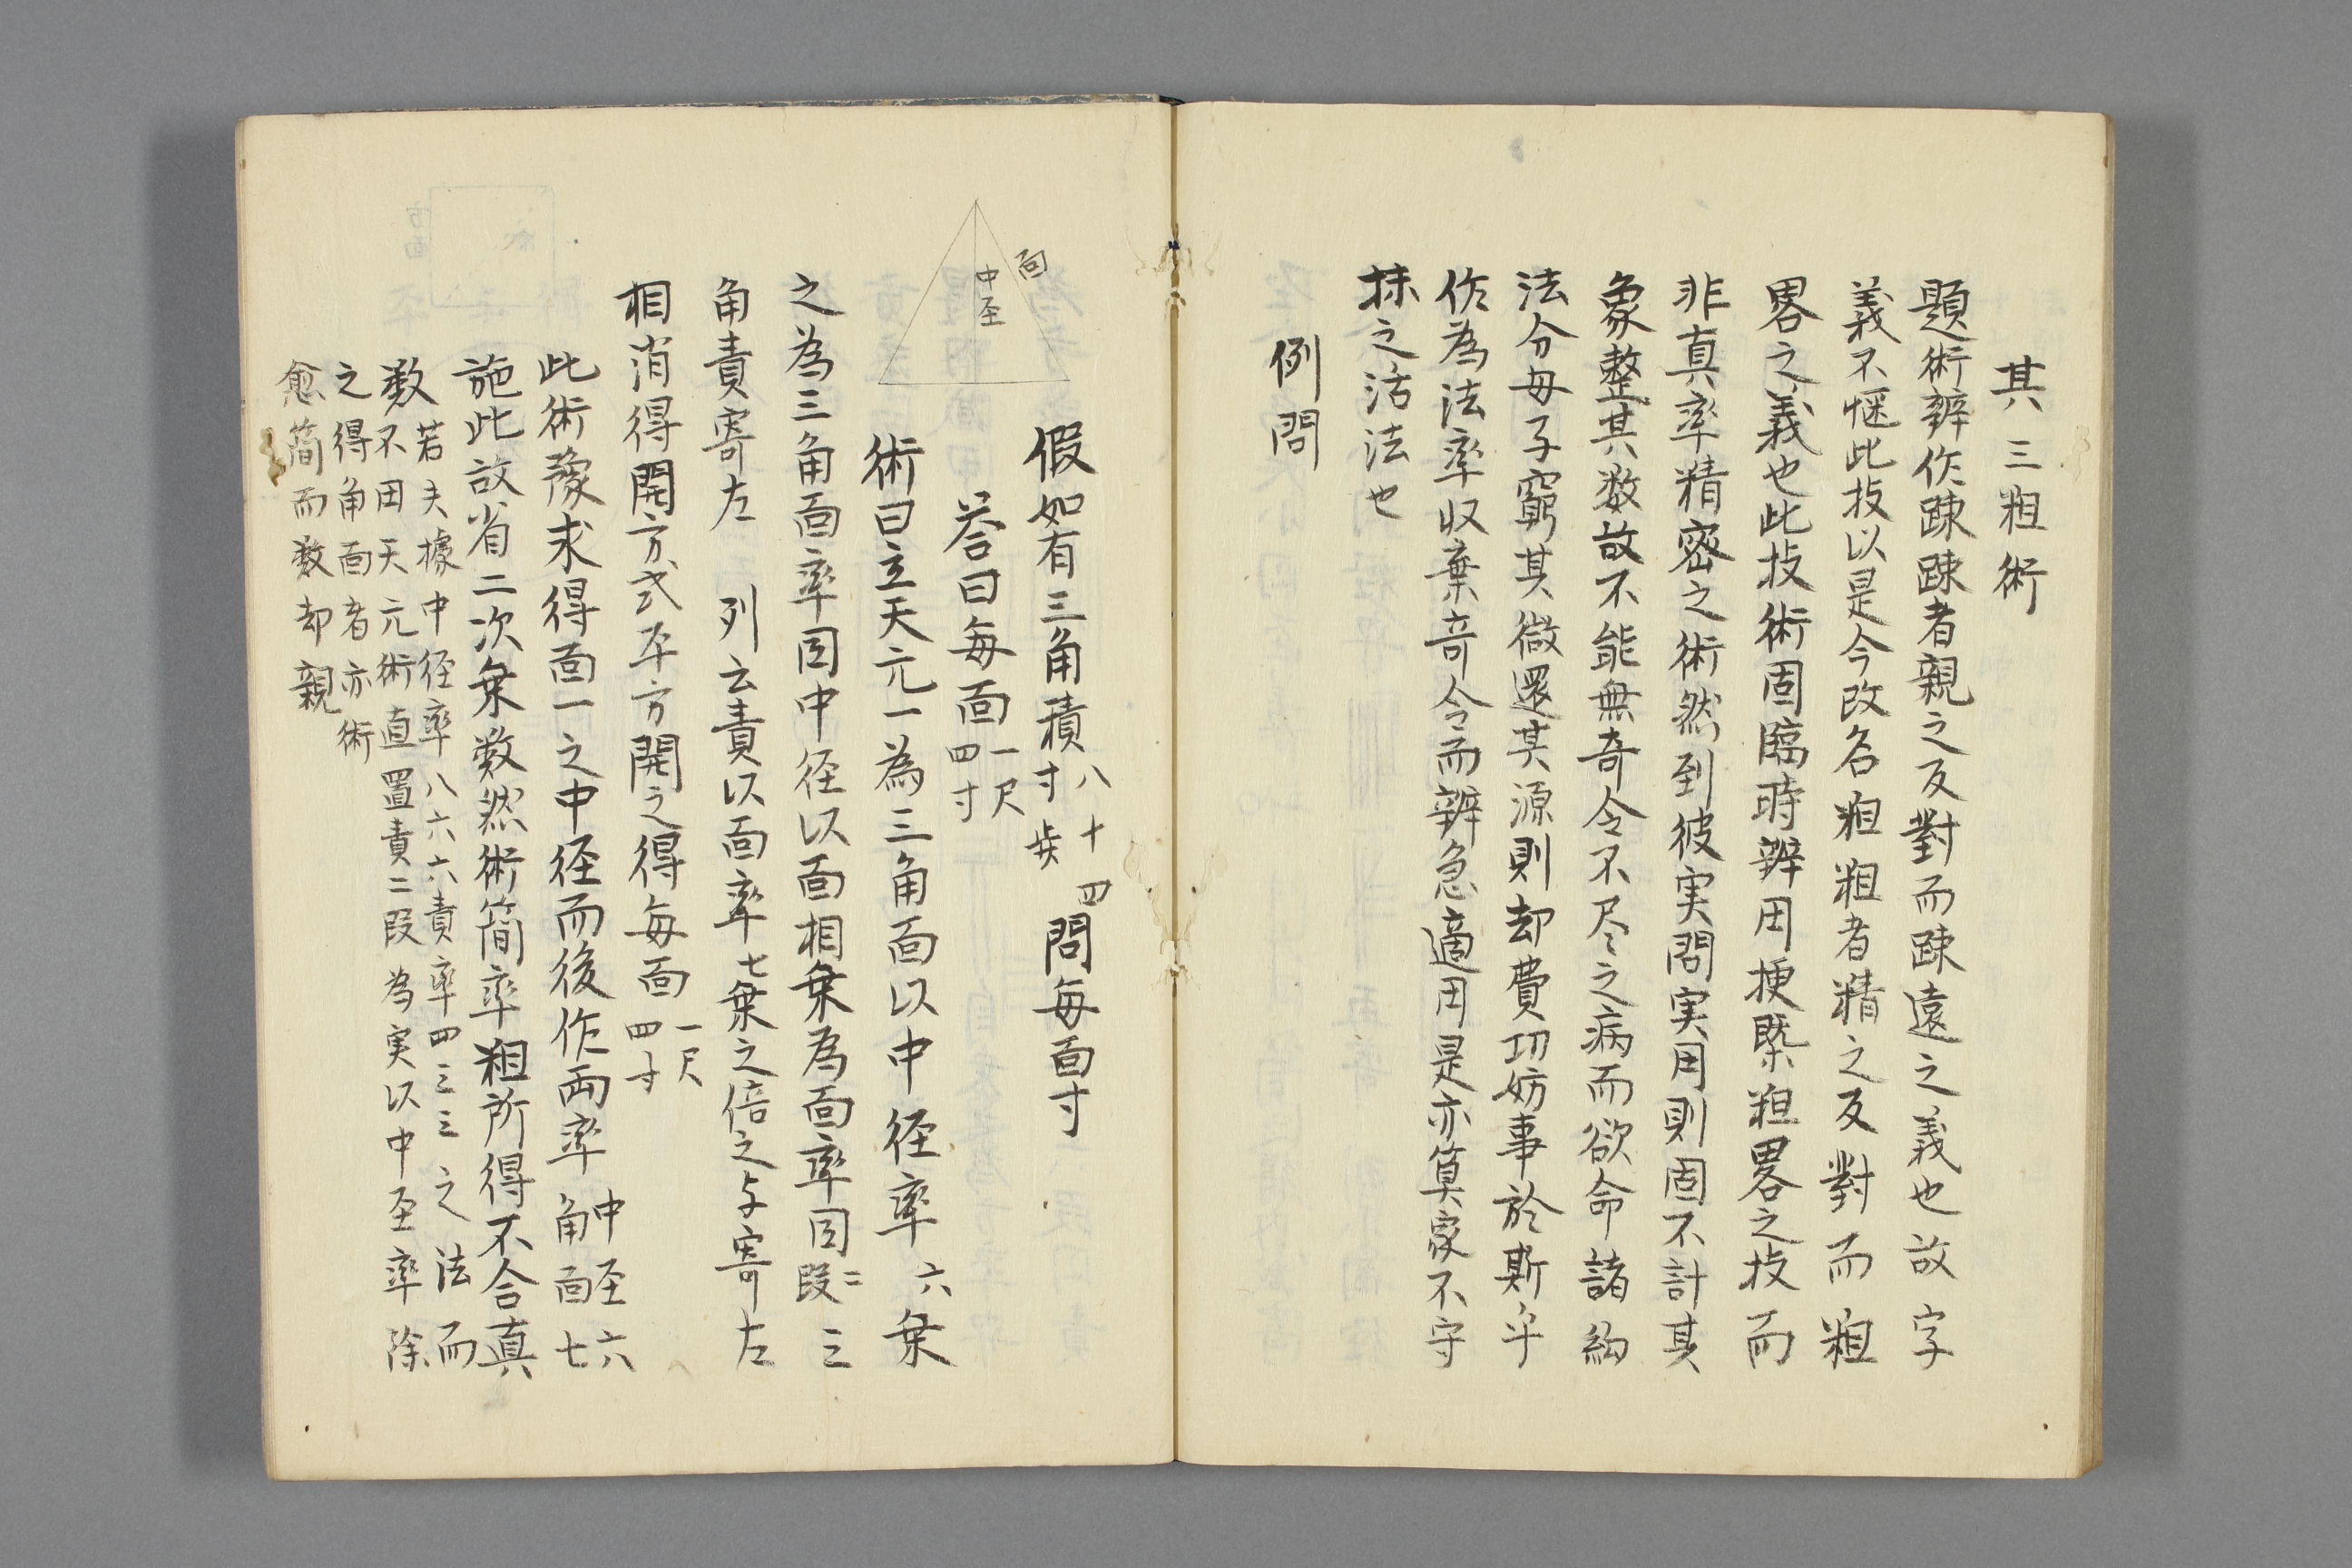 其三粗術
題術辨作踈踈者親之反對而踈遠之義也故字
義不愜此技以是今改名粗粗者精之反對而粗
畧之義也此技術固臨時辨用梗槩粗畧之技而
非真率精密之術然到彼実問実用則固不計其
象整其数故不能無奇令不尽之病而欲命諸約
法分母子窮其微還其源則却費功妨事於斯乎
作為法率収棄奇令而辨急適用是亦算家不守
株之活法也
例問
面
中至
假如有三角積八十四寸歩問每面寸
荅曰每面一尺四寸
術曰立天元一為三角面以中径率六乗
之為三角面率因中径以面相乗為面率因二段三
角責寄左 列云責以面率七乗之倍之与寄左
相消得開方式平方開之得每面一尺四寸
此術豫求得面一之中径而後作両率中至六角面七
施此故省二次乗数然術簡率粗所得不合真
数若夫據中径率八六六責率四三三之法而
不用天元術直置責二段為実以中至率除
之得角面者亦術
愈簡而数却親